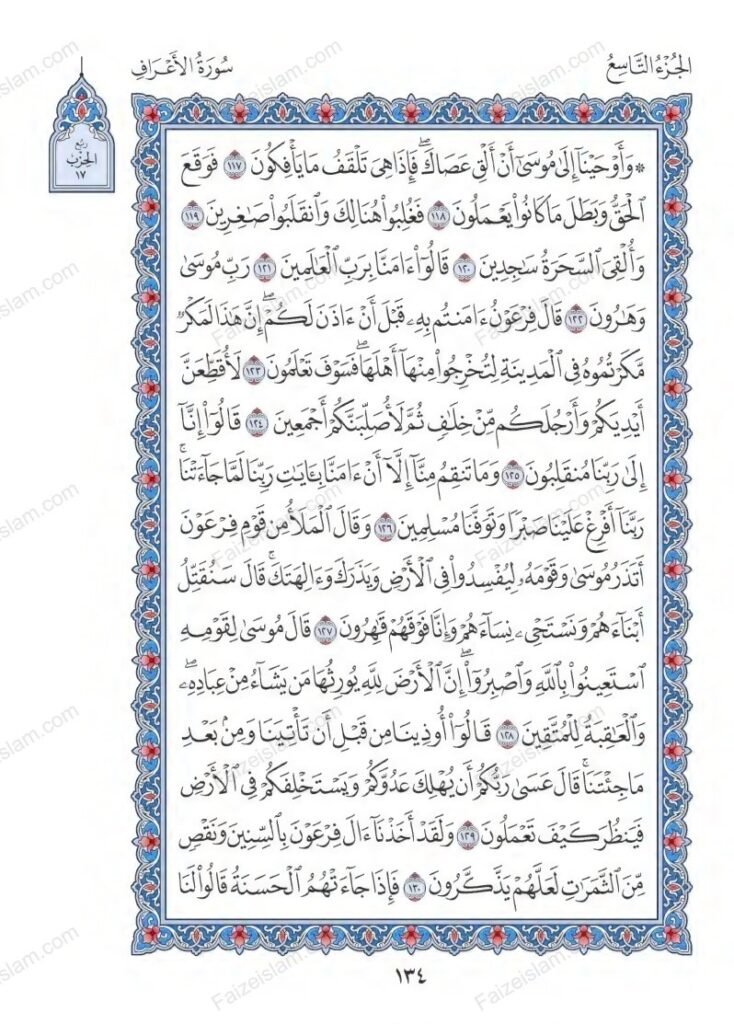 الجُزْءُ التَّاسِعُ
سُورَةُ الأَعْرَاف
رُبع
الحِزْبِ
١٧
۞ وَأَوْحَيْنَآ إِلَىٰ مُوسَىٰٓ أَنْ أَلْقِ عَصَاكَۖ فَإِذَا هِىَ تَلْقَفُ مَا يَأْفِكُونَ ١١٧ فَوَقَعَ
ٱلْحَقُّ وَبَطَلَ مَا كَانُوا۟ يَعْمَلُونَ ١١٨ فَغُلِبُوا۟ هُنَالِكَ وَٱنقَلَبُوا۟ صَٰغِرِينَ ١١٩
وَأُلْقِىَ ٱلسَّحَرَةُ سَٰجِدِينَ ١٢٠ قَالُوٓا۟ ءَامَنَّا بِرَبِّ ٱلْعَٰلَمِينَ ١٢١ رَبِّ مُوسَىٰ
وَهَٰرُونَ ١٢٢ قَالَ فِرْعَوْنُ ءَامَنتُم بِهِۦ قَبْلَ أَنْ ءَاذَنَ لَكُمْۖ إِنَّ هَٰذَا لَمَكْرٌ
مَّكَرْتُمُوهُ فِى ٱلْمَدِينَةِ لِتُخْرِجُوا۟ مِنْهَآ أَهْلَهَاۖ فَسَوْفَ تَعْلَمُونَ ١٢٣ لَأُقَطِّعَنَّ
أَيْدِيَكُمْ وَأَرْجُلَكُم مِّنْ خِلَٰفٍ ثُمَّ لَأُصَلِّبَنَّكُمْ أَجْمَعِينَ ١٢٤ قَالُوٓا۟ إِنَّآ
إِلَىٰ رَبِّنَا مُنقَلِبُونَ ١٢٥ وَمَا تَنقِمُ مِنَّآ إِلَّآ أَنْ ءَامَنَّا بِـَٔايَٰتِ رَبِّنَا لَمَّا جَآءَتْنَاۚ
رَبَّنَآ أَفْرِغْ عَلَيْنَا صَبْرًا وَتَوَفَّنَا مُسْلِمِينَ ١٢٦ وَقَالَ ٱلْمَلَأُ مِن قَوْمِ فِرْعَوْنَ
أَتَذَرُ مُوسَىٰ وَقَوْمَهُۥ لِيُفْسِدُوا۟ فِى ٱلْأَرْضِ وَيَذَرَكَ وَءَالِهَتَكَۚ قَالَ سَنُقَتِّلُ
أَبْنَآءَهُمْ وَنَسْتَحْىِۦ نِسَآءَهُمْ وَإِنَّا فَوْقَهُمْ قَٰهِرُونَ ١٢٧ قَالَ مُوسَىٰ لِقَوْمِهِ
ٱسْتَعِينُوا۟ بِٱللَّهِ وَٱصْبِرُوٓا۟ۖ إِنَّ ٱلْأَرْضَ لِلَّهِ يُورِثُهَا مَن يَشَآءُ مِنْ عِبَادِهِۦۖ
وَٱلْعَٰقِبَةُ لِلْمُتَّقِينَ ١٢٨ قَالُوٓا۟ أُوذِينَا مِن قَبْلِ أَن تَأْتِيَنَا وَمِنۢ بَعْدِ
مَا جِئْتَنَاۚ قَالَ عَسَىٰ رَبُّكُمْ أَن يُهْلِكَ عَدُوَّكُمْ وَيَسْتَخْلِفَكُمْ فِى ٱلْأَرْضِ
فَيَنظُرَ كَيْفَ تَعْمَلُونَ ١٢٩ وَلَقَدْ أَخَذْنَآ ءَالَ فِرْعَوْنَ بِٱلسِّنِينَ وَنَقْصٍ
مِّنَ ٱلثَّمَرَٰتِ لَعَلَّهُمْ يَذَّكَّرُونَ ١٣٠ فَإِذَا جَآءَتْهُمُ ٱلْحَسَنَةُ قَالُوا۟ لَنَا
١٣٤
Faizeislam.com